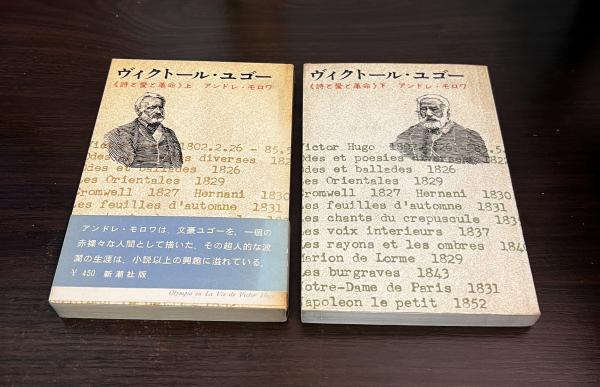 ヴィクトール・ユゴー
《詩と愛と革命》上 アンドレ・モロワ
1802.2.26 - 85.5
odes et s diverses 182
odes et ballades 1826
Les Orientales 1829
Cromwell 1827 Hernani 1830
Les feuilles d'automne 1831
アンドレ・モロワは、文豪ユゴーを、一個の
赤裸々な人間として描いた。その超人的な波
瀾の生涯は、小説以上の興趣に溢れている。
¥ 450 新潮社版
Olympio ou La Vie de Victor Hugo
ヴィクトール・ユゴー
《詩と愛と革命》下 アンドレ・モロワ
Victor Hugo 85.5
Odes et poesies diverses 182
odes et ballades 1826
Les Orientales 1829
Cromwell 1827 Hernani 1830
Les feuilles d'automne 1831
Les chants du crepuscule 183
Les voix interieurs 1837
Les rayons et les ombres 184
Marion de Lorme 1829
Les burgraves 1843
Notre-Dame de Paris 1831
Napoleon le petit 1852